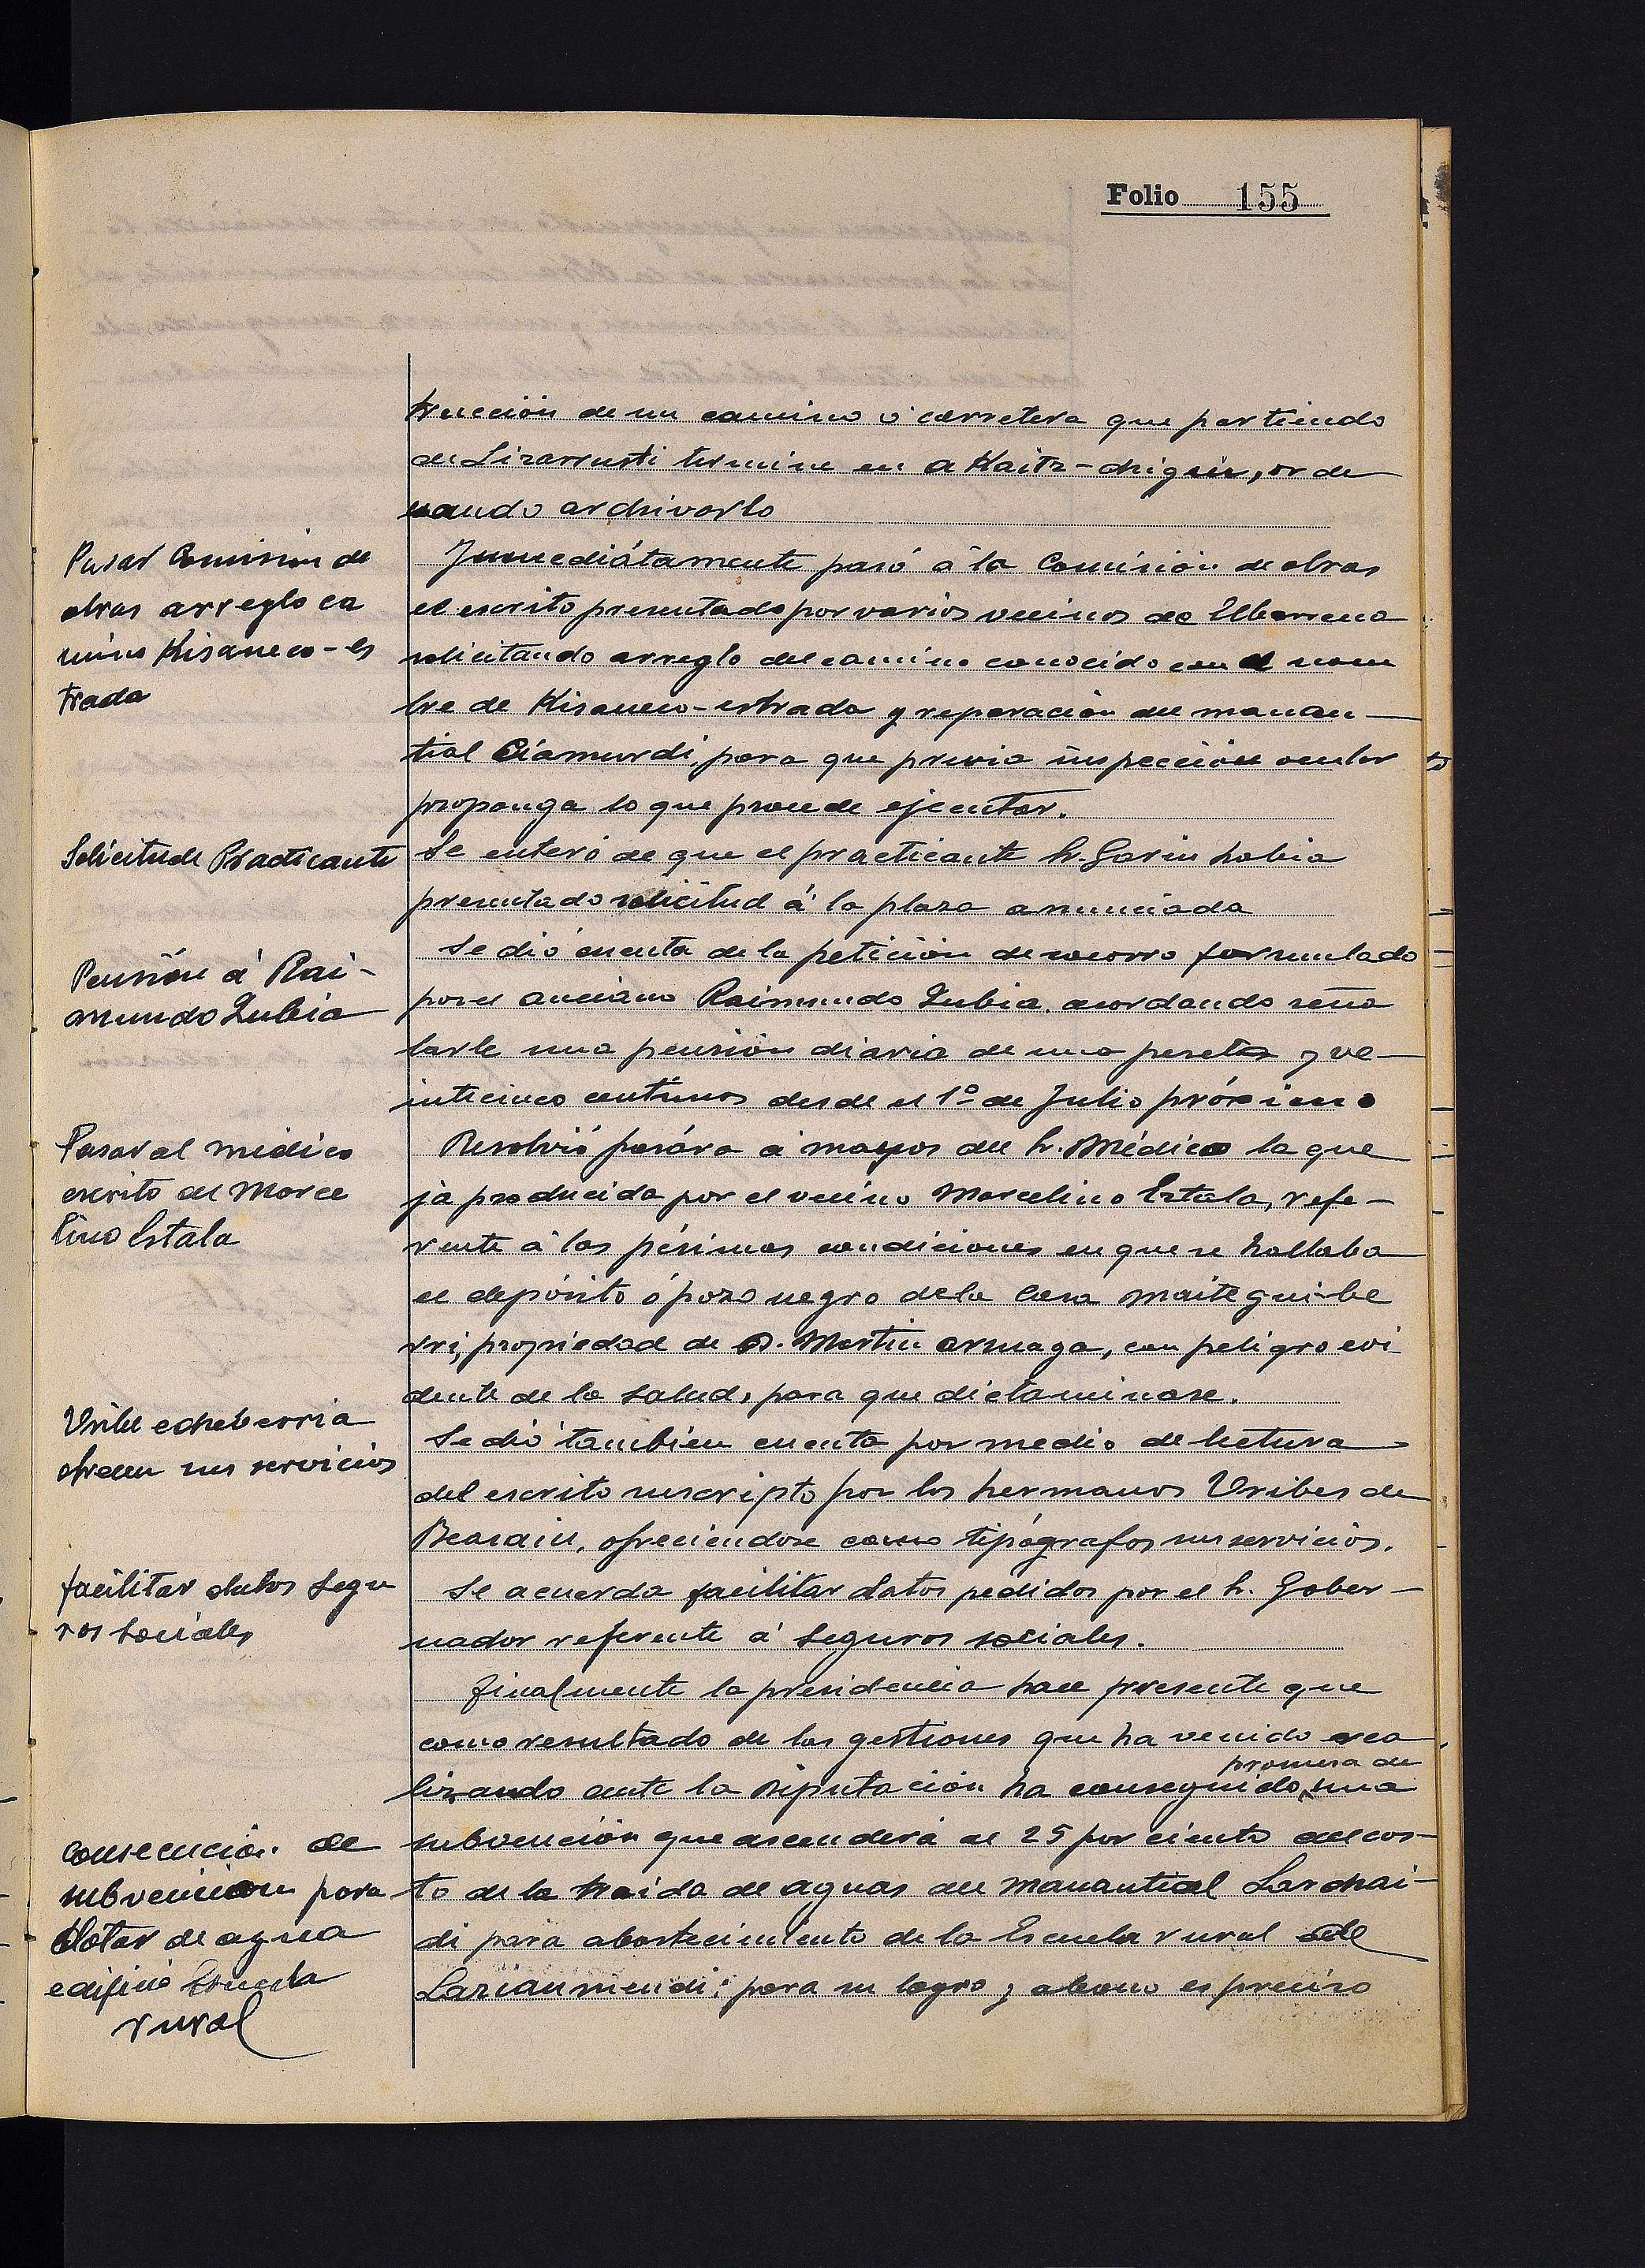 Folio 155
trucción de un camino ó carretera que partiendo
de Lizarrusti termine en Akaitz-chiquin, orde
nando archivarlo
Pasar Comision de
obras arreglo ca
mino Kisaneco-es
trada
Inmediátamente pasó á la Comisión de obras
el escrito presentado por varios vecinos de Elbarrena
solicitando arreglo del camino conocido con el nom
bre de Kisaneco-estrada y reparación del manan-
tial Ciamurdi, para que previa inspección ocular
proponga lo que procede ejecutar.
Solicitud Practicante
Se enteró de que el practicante Sr. Garin habia
presentado solicitud á la plaza anunciada
Pensión á Rai-
mundo Zubia
Se dió cuenta de la petición de socorro formulado
por el anciano Raimundo Zubia, acordando seña
larle una pensión diaria de una peseta y ve-
inticinco centimos desde el 1º de Julio próximo
Pasar al médico
escrito de Marce
lino Estala
Resolvió pasára á manos del Sr. Médico la que
ja producida por el vecino Marcelino Estala, refe-
rente á las pésimas condiciones en que se hallaba
el depósito ó pozo negro de la Casa Maiteguibe
rri, propiedad de D. Martin Armaga, con peligro evi
dente de la salud, para que dictaminase.
Uribeecheberria
ofrecen sus servicios
Se dió tambien cuenta por medio de lectura
del escrito suscripto por los hermanos Uribes de
Beasain, ofreciendose como tipógrafos sus servicios.
facilitar datos Segu
ros Sociales
Se acuerda facilitar datos pedidos por el Sr. Gober-
nador referente á Seguros sociales.
Finalmente la presidencia hace presente que
como resultado de las gestiones que ha venido rea
lizando ante la Diputación ha conseguido promesa de una
Consecución de
subvencion para
dotar de agua
edificio Escuela
rural
subvención que ascenderá al 25 por ciento del cos-
to de la traida de aguas del manantial Larchai-
di para abastecimiento de la Escuela rural de
Lazcaumendi; para su logro y abono es preciso